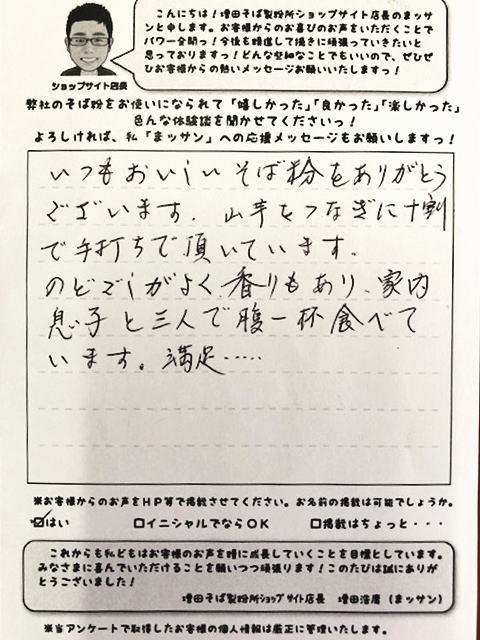 こんにちは！増田そば製粉所ショップサイト店長のまッサ
ンと申します。お客様からのお喜びのお声をいただくことで
パワー全開っ！今後も精進して挽きに頑張っていきたいと
思っておりますっ！どんな些細なことでもいいので、ぜひぜ
ひお客様からの熱いメッセージお願いいたしますっ！
ショップサイト店長
弊社のそば粉をお使いになられて「嬉しかった」「良かった」「楽しかった」
色んな体験談を聞かせてくださいっ！
よろしければ、私「まッサン」への応援メッセージもお願いしますっ！
いつもおいしいそば粉をありがとう
ございます。山芋をつなぎに十割
で手打ちで頂いています。
のどごしがよく、香りもあり、家内
息子と三人で腹一杯食べて
います。満足……
※お客様からのお声をHP等で掲載させてください。お名前の掲載は可能でしょうか。
☑はい □イニシャルでならOK □掲載はちょっと・・・
これからも私どもはお客様のお声を糧に成長していくことを目標としています。
みなさまに喜んでいただけることを願いつつ頑張ります！このたびは誠にありが
とうございました！
増田そば製粉所ショップサイト店長 増田浩庸（まッサン）
※当アンケートで取得したお客様の個人情報は厳正に管理いたします。